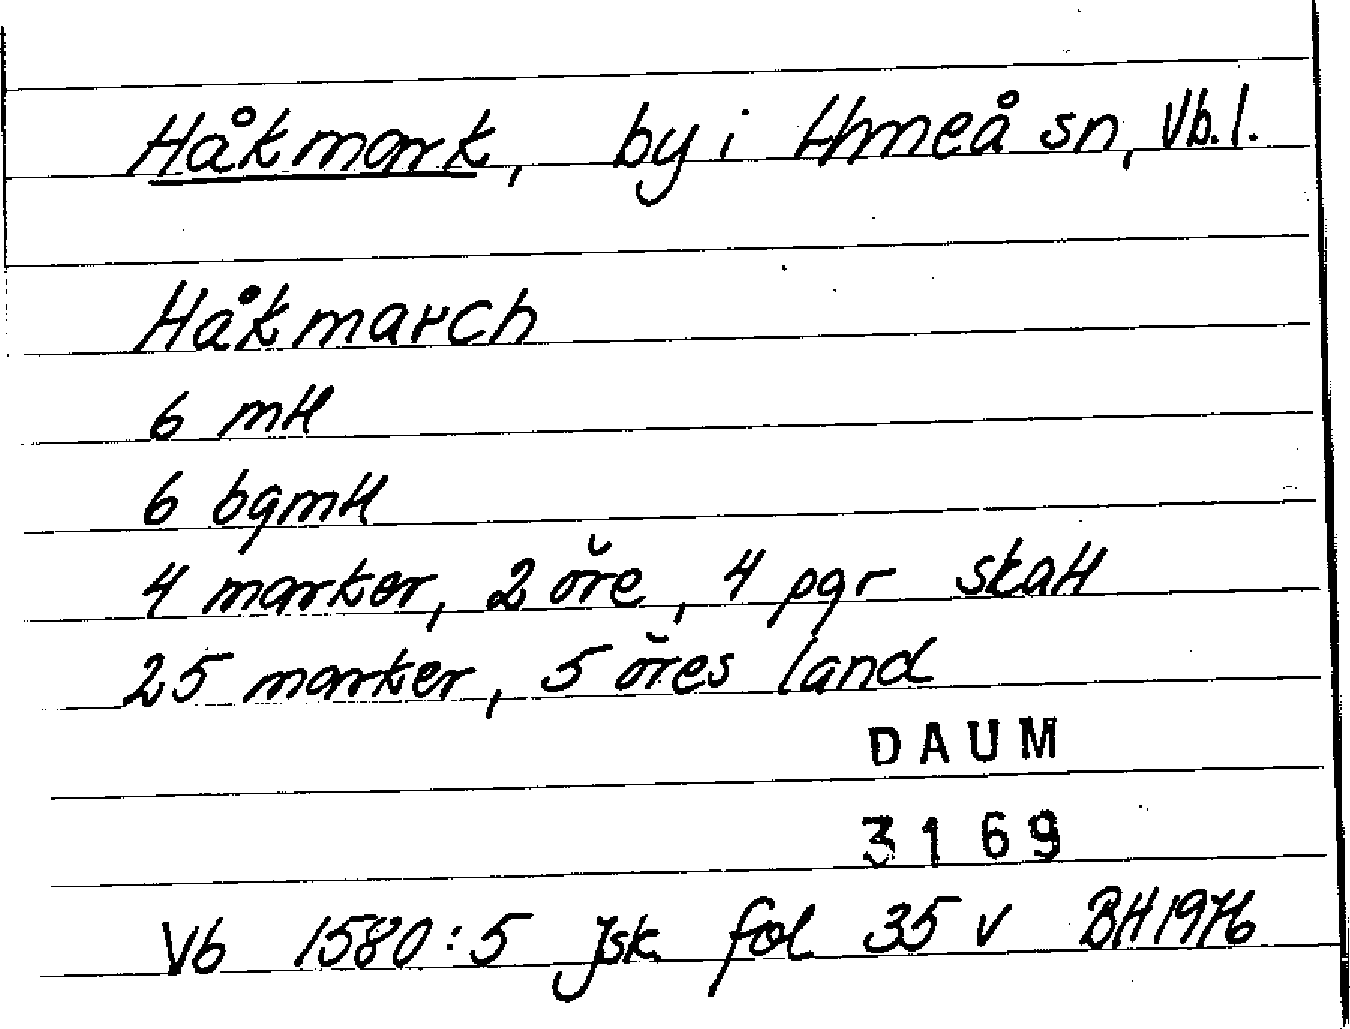 Håkmark, by i Umeå sn, Vb.l.
Håkmarch
6 mtl
6 bgmtl
4 marker, 2 öre, 4 pgr skatt
25 marker, 5 öres land
DAUM
3169
Vb 1580:5 Jsk fol 35 v BH1976